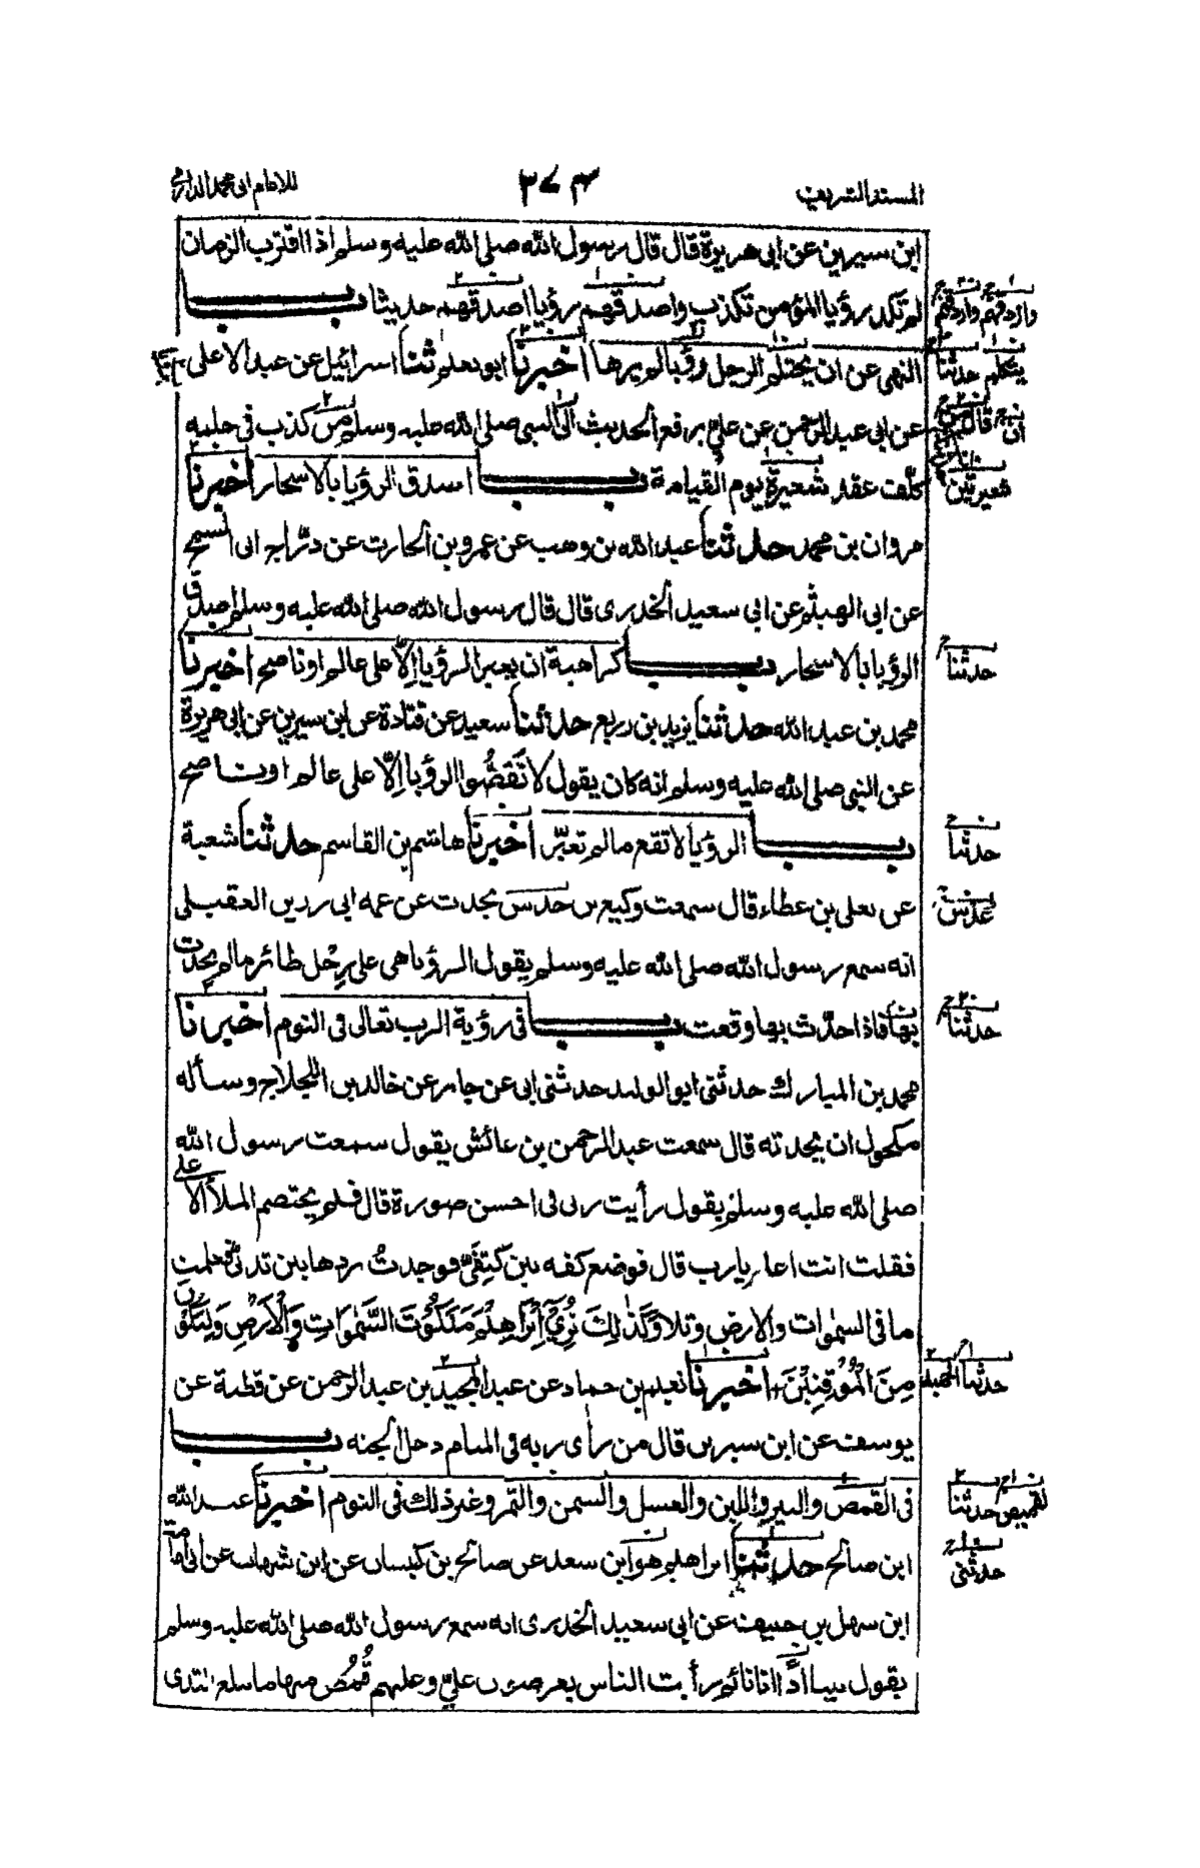 المسند الشريف ٢٧٣ للامام ابى محمد الدارمى
ابن سيرين عن ابى هريرة قال قال رسول الله صلى الله عليه وسلم اذا اقترب الزمان
لم تكد رؤيا المؤمن تكذب واصدقهم رؤيا اصدقهم حديثا باب
النهى عن ان يحتلم الرجل رؤيا لم يرها اخبرنا ابو نعيم ثنا اسرائيل عن عبد الاعلى
عن ابى عبد الرحمن عن علىّ يرفع الحديث الى النبى صلى الله عليه وسلم من كذب فى حلمه
كلّف عقد شعيرة يوم القيامة باب اصدق الرؤيا بالاسحار اخبرنا
مروان بن محمد حدثنا عبد الله بن وهب عن عمرو بن الحارث عن درّاج ابى السمح
عن ابى الهيثم عن ابى سعيد الخدرى قال قال رسول الله صلى الله عليه وسلم اصدق
الرؤيا بالاسحار باب كراهية ان يعبر الرؤيا إلّا على عالم او ناصح اخبرنا
محمد بن عبد الله حدثنا يزيد بن زريع حدثنا سعيد عن قتادة عن ابن سيرين عن ابى هريرة
عن النبى صلى الله عليه وسلم انه كان يقول لا تَقُصُّوا الرؤيا إلّا على عالم او ناصح
باب الرؤيا لا تقع ما لم تعبّر اخبرنا هاشم بن القاسم حدثنا شعبة
عن يعلى بن عطاء قال سمعت وكيع بن حدس يحدث عن عمه ابى رزين العقيلى
انه سمع رسول الله صلى الله عليه وسلم يقول الرؤيا هى على رِجْل طائر ما لم يحدث
بها فاذا حدّث بها وقعت باب فى رؤية الرب تعالى فى النوم اخبرنا
محمد بن المبارك حدثنى ابو الوليد حدثنى ابى عن جابر عن خالد بن اللجلاج وسأله
مكحول ان يحدثه قال سمعت عبد الرحمن بن عائش يقول سمعت رسول الله
صلى الله عليه وسلم يقول رأيت ربى فى احسن صورة قال فيم يختصم الملأ الاعلى
فقلت انت اعلم يا رب قال فوضع كفه بين كتِفَىّ فوجدتُ بردها بين ثديىّ فعلمت
ما فى السموات والارض وتلا وَكَذٰلِكَ نُرِىٓ اِبْرَاهِيْمَ مَلَكُوْتَ السَّمٰوَاتِ وَالْاَرْضِ وَلِيَكُوْنَ
مِنَ الْمُوْقِنِيْنَ اخبرنا نعيم بن حماد عن عبد المجيد بن عبد الرحمن عن قطبة عن
يوسف عن ابن سيرين قال من رأى ربه فى المنام دخل الجنة باب
فى القمص والبير واللبن والعسل والسمن والتمر وغير ذلك فى النوم اخبرنا عبد الله
ابن صالح حدثنا ابراهيم هو ابن سعد عن صالح بن كيسان عن ابن شهاب عن ابى امامة
ابن سهل بن حنيف عن ابى سعيد الخدرى انه سمع رسول الله صلى الله عليه وسلم
يقول بينا انا نائم رأيت الناس يعرضون علىّ وعليهم قُمُصٌ منها ما يبلغ الثدى
وازدقهم وازدقهم
يتكلم حدثنا
ان قال
شعيرتين
حدثنا
حدثنا
عدس
حدثنا
حدثنا الحميد
القميص حدثنا
حدثنى